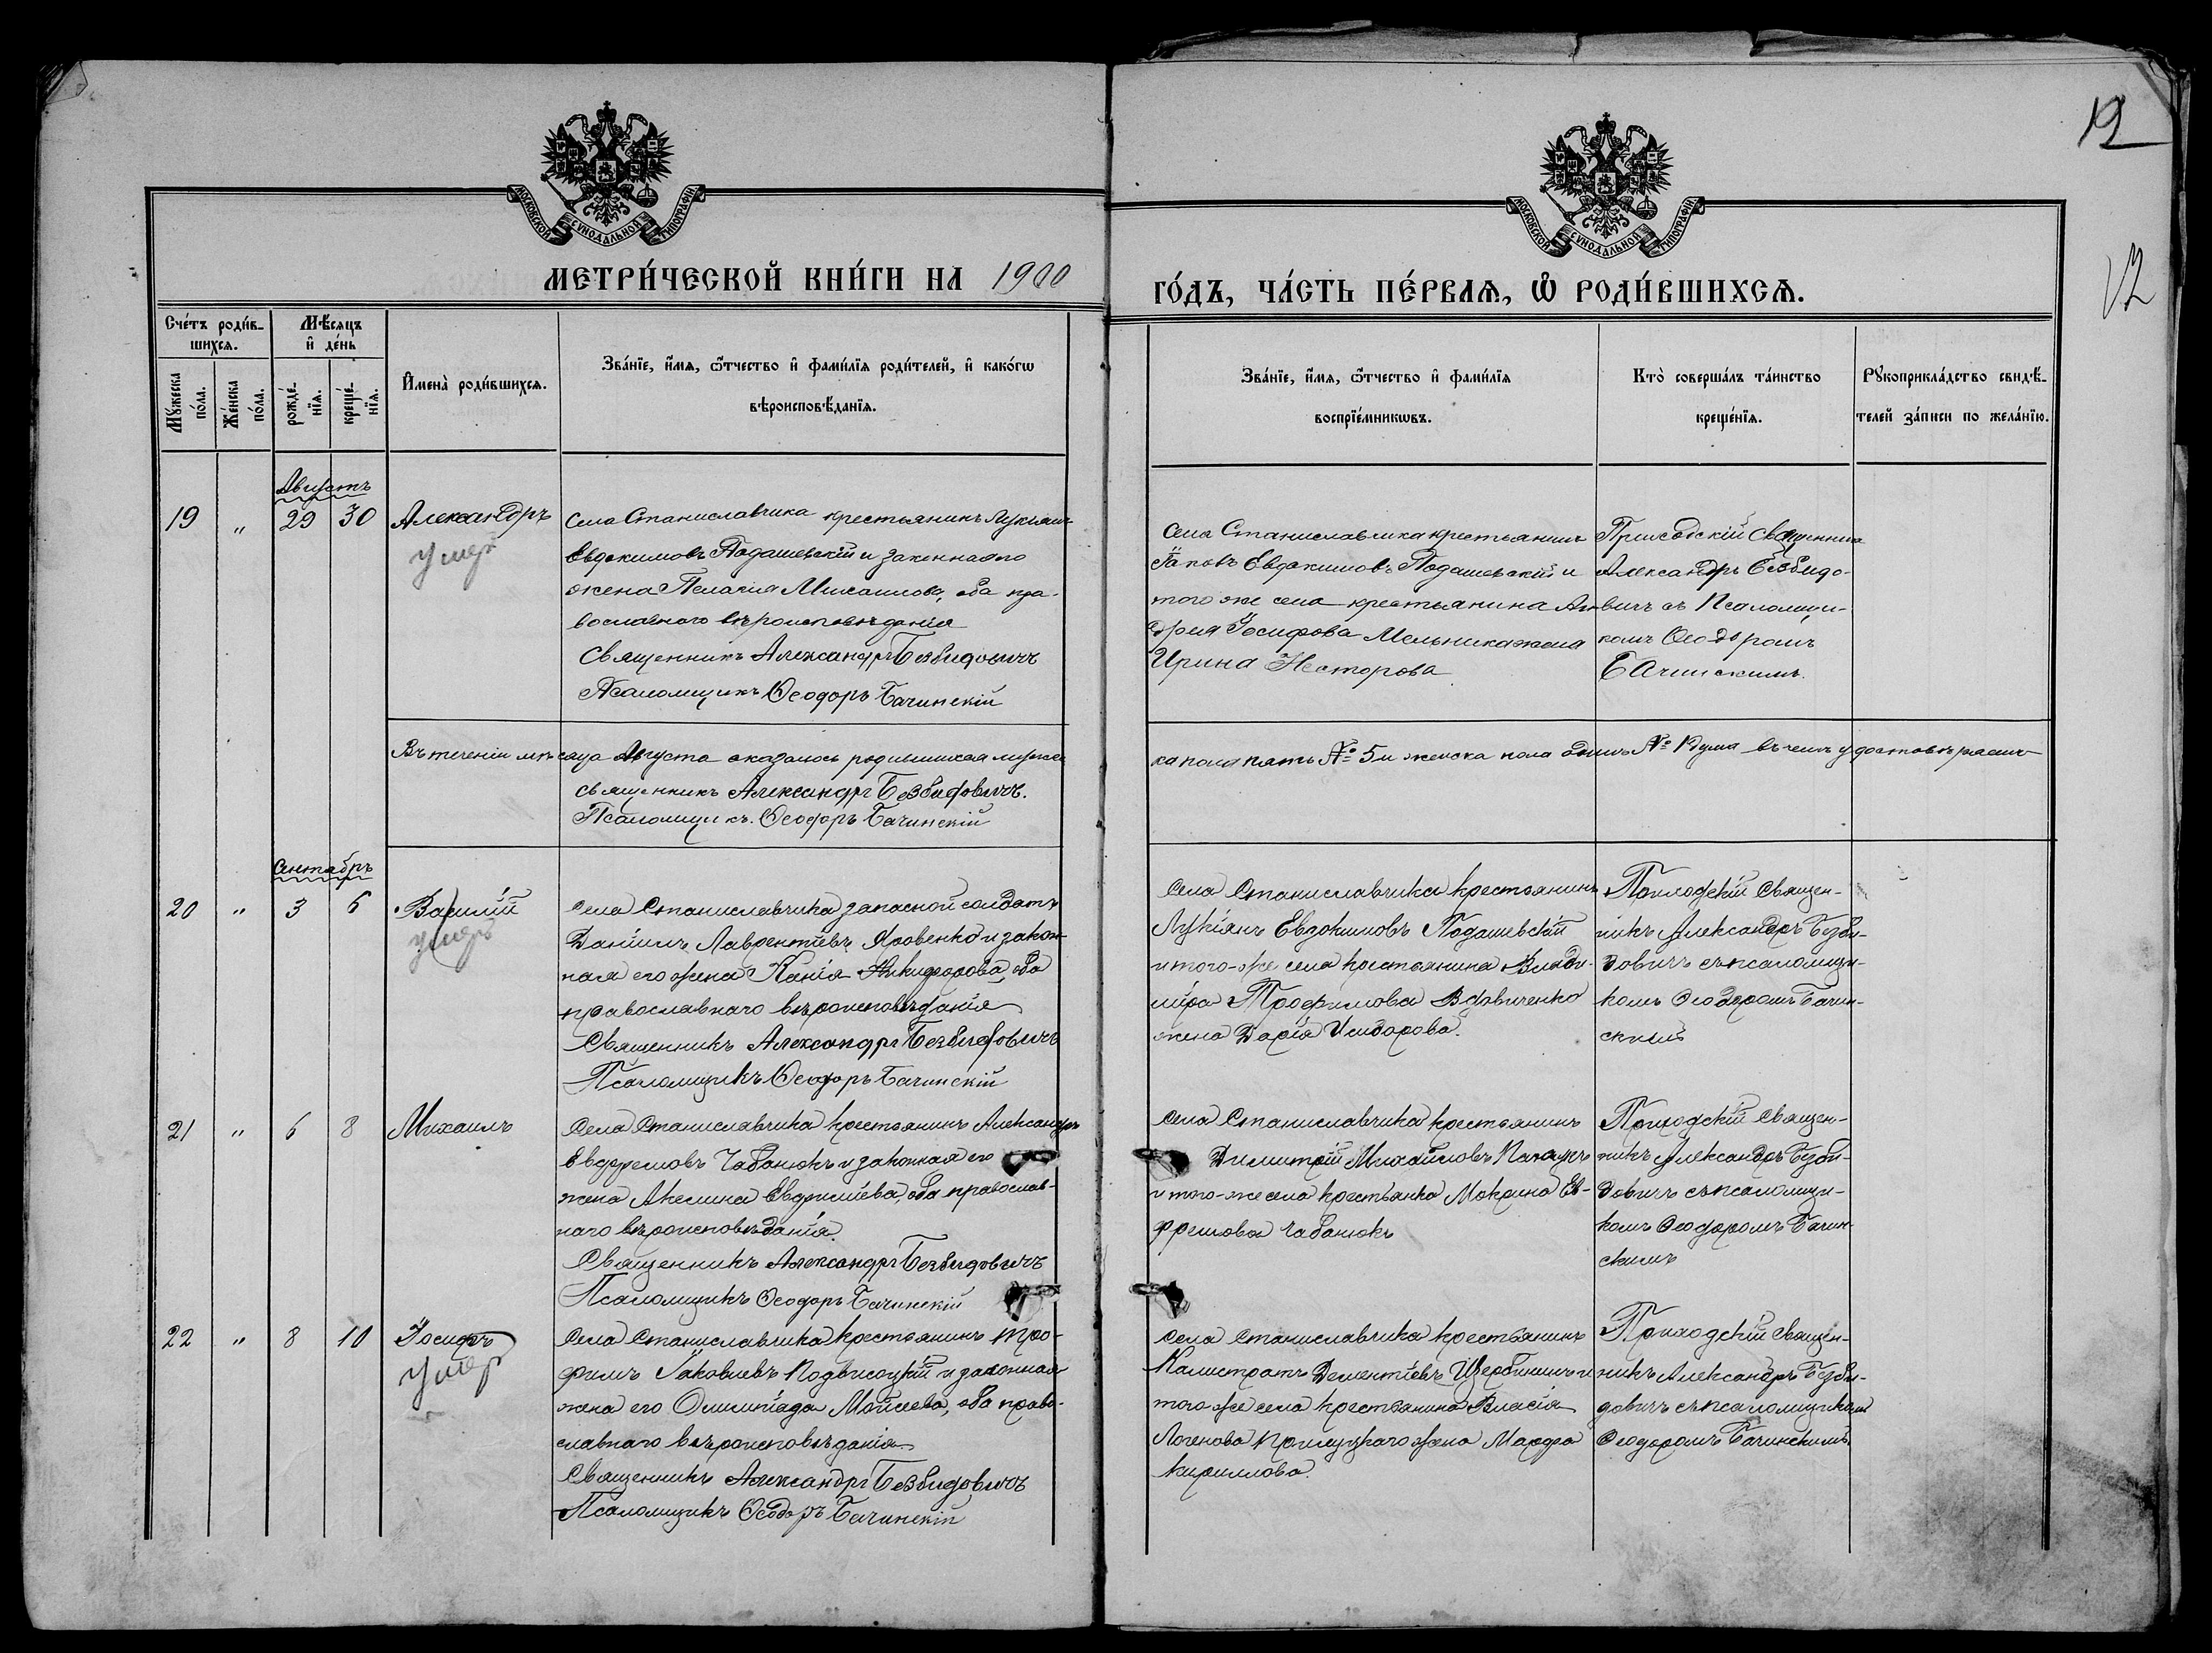 12
12
МОСКОВСКОЙ СѴНОДАЛЬНОЙ ТИПОГРАФІИ
МОСКОВСКОЙ СѴНОДАЛЬНОЙ ТИПОГРАФІИ
МЕТРИ́ЧЕСКОЙ КНИ́ГИ НА 1900
ГО́ДЪ, ЧА́СТЬ ПЕ́РВАѦ, Ѿ РОДИ́ВШИХСѦ.
Сче́тъ роди́в-
шихсѧ.
Мѣ́сѧцъ
и҆ де́нь
Мꙋ́жеска
по́ла.
Же́нска
по́ла.
рожде́-
нїѧ.
креще́-
нїѧ.
И҆мена̀ роди́вшихсѧ.
Зва́нїе, и҆́мѧ, ѻ҆́тчество и҆ фами́лїѧ роди́телей, и҆ како́гѡ
вѣроисповѣ́данїѧ.
Зва́нїе, и҆́мѧ, ѻ҆́тчество и҆ фами́лїѧ
воспрїе́мникѡвъ.
Кто̀ соверша́лъ та́инство
креще́нїѧ.
Рꙋкоприкла́дство свидѣ́-
телей за́писи по жела́нїю.
Августъ
19 " 29 30 Александръ
умеръ
Села Станиславчика крестьянинъ Лукіянъ
Евдокимовъ Подашевскій и законная его
жена Пелагія Михаилова, оба пра-
вославнаго вѣроисповѣданія
Священникъ Александръ Безвидовичъ
Псаломщикъ Ѳеодоръ Бачинскій
Села Станиславчика крестьянинъ
Іаковъ Евдокимовъ Подашевскій и
того же села крестьянина Ан-
дрея Іосифова Мельника жена
Ирина Несторова
Приходскій Священникъ
Александръ Безвидо-
вичъ съ Псаломщи-
комъ Ѳеодоромъ
Бачинскимъ.
Въ теченіи мѣсяца Августа оказалось родившихся мужес-
ка пола пять № 5 и женска пола одинъ № 1 душа въ чемъ удостовѣряемъ
Священникъ Александръ Безвидовичъ.
Псаломщикъ. Ѳеодоръ Бачинскій
Сентябрь
20 " 3 6 Василій
умеръ
Села Станиславчика запасной солдатъ
Даніилъ Лаврентіевъ Яровенко и закон-
ная его жена Никифорова, оба
православнаго вѣроисповѣданія
Священникъ Александръ Безвидовичъ
Псаломщикъ Ѳеодоръ Бачинскій
Села Станиславчика крестьянинъ
Лукіянъ Евдокимовъ Подашевскій
и того-же села крестьянина Влади-
міра Трофимова Вдовиченко
жена Дарія Исидорова.
Приходскій Священ-
никъ Александръ Безви-
довичъ съ псаломщи-
комъ Ѳеодоромъ Бачин-
скимъ
21 " 6 8 Михаилъ
Села Станиславчика крестьянинъ Александръ
Евфремовъ Чабанюкъ и законная его
жена Акелина Евфиміева, оба православ-
наго вѣроисповѣданія.
Священникъ Александръ Безвидовичъ
Псаломщикъ Ѳеодоръ Бачинскій
Села Станиславчика крестьянинъ
Димитрій Михайловъ
и того-же села крестьянка Мокрина Ев-
фремова Чабанюкъ
Приходскій Священ-
никъ Александръ Безви-
довичъ съ псаломщи-
комъ Ѳеодоромъ Бачин-
скимъ
22 " 8 10 Іосифъ
умеръ
Села Станиславчика крестьянинъ Тро-
фимъ Іаковлевъ Подвысоцкій и законная
жена его Олимпіада Мойсеева, оба право-
славнаго вѣроисповѣданія
Священникъ Александръ Безвидовичъ
Псаломщикъ Ѳеодоръ Бачинскій
Села Станиславчика крестьянинъ
Калистратъ Дементіевъ и
того-же села крестьянина Власія
Логенова жена Марфа
Кириллова.
Приходскій Священ-
никъ Александръ Безви-
довичъ съ псаломщикомъ
Ѳеодоромъ Бачинскимъ